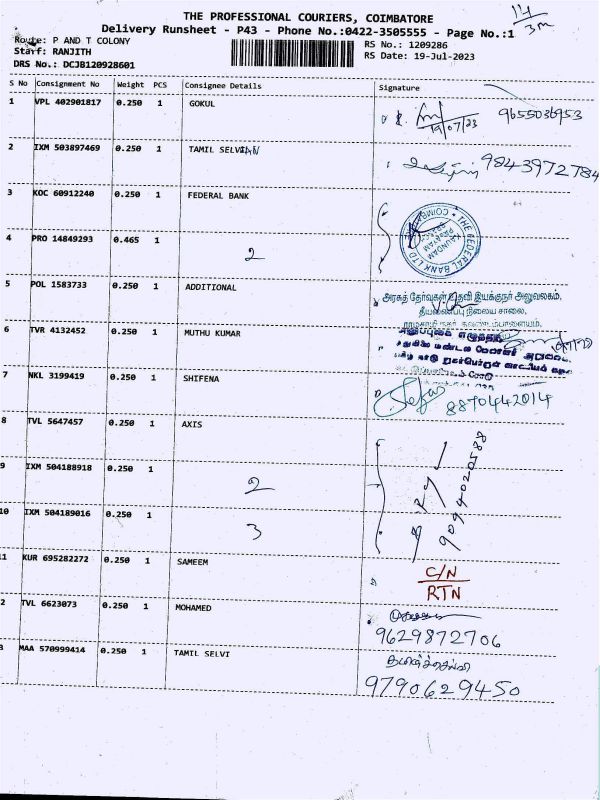 THE PROFESSIONAL COURIERS, COIMBATORE
Delivery Runsheet - P43 - Phone No.:0422-3505555 - Page No.:1
Route: P AND T COLONY
Staff: RANJITH
DRS No.: DCJB120928601
RS No.: 1209286
RS Date: 19-Jul-2023
S No Consignment No Weight PCS Consignee Details Signature
1 VPL 402901817 0.250 1 GOKUL 19/07/23 9655036953
2 IXM 503897469 0.250 1 TAMIL SELVI 9843972784
3 KOC 60912240 0.250 1 FEDERAL BANK
THE FEDERAL BANK LTD
4 PRO 14849293 0.465 1 2
5 POL 1583733 0.250 1 ADDITIONAL
அரசுத் தேர்வுகள் உதவி இயக்குநர் அலுவலகம்,
தீயணைப்பு நிலைய சாலை,
6 TVR 4132452 0.250 1 MUTHU KUMAR
7 NKL 3199419 0.250 1 SHIFENA 8870442014
8 TVL 5647457 0.250 1 AXIS 9094020588
9 IXM 504188918 0.250 1 2
10 IXM 504189016 0.250 1 3
11 KUR 695282272 0.250 1 SAMEEM C/N
RTN
2 TVL 6623073 0.250 1 MOHAMED
9629872706
3 MAA 570999414 0.250 1 TAMIL SELVI தமிழ்ச்செல்வி
9790629450